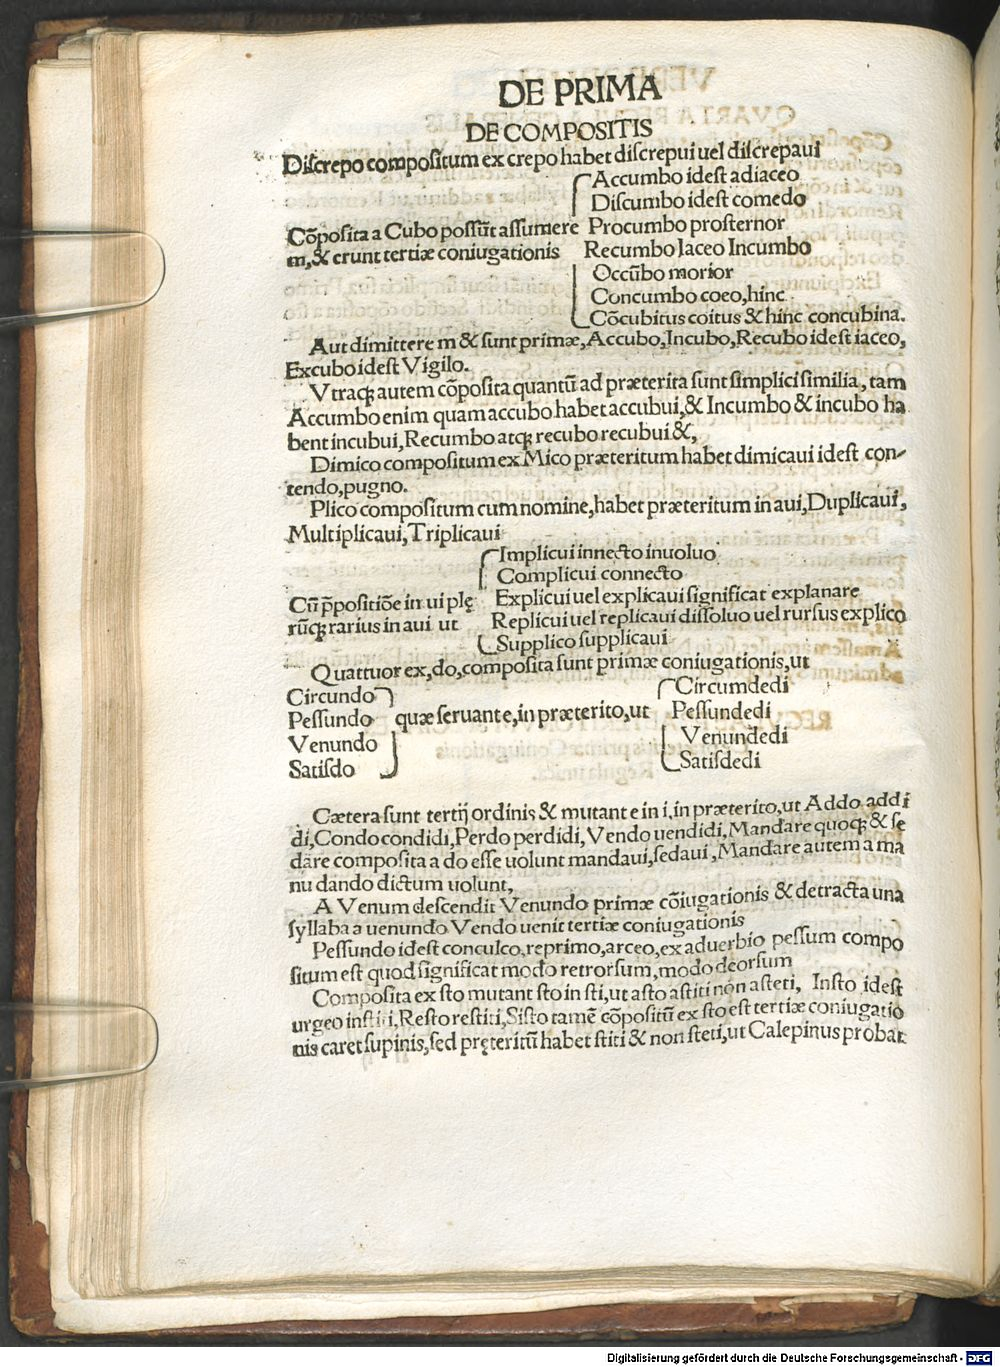 DE PRIMA
DE COMPOSITIS
Diſcrepo compoſitum ex crepo habet diſcrepui uel diſcrepaui
Accumbo ideſt adiaceo
Diſcumbo ideſt comedo
Cõpoſita a Cubo poſſũt aſſumere Procumbo proſternor
m,& erunt tertiæ coniugationis Recumbo Iaceo Incumbo
Occũbo morior
Concumbo coeo,hinc
Cõcubitus coitus & hinc concubina.
Aut dimittere m & ſunt primæ,Accubo,Incubo,Recubo ideſt iaceo,
Excubo ideſt Vigilo.
Vtraqꝫ autem cõpoſita quantũ ad præterita ſunt ſimplici ſimilia, tam
Accumbo enim quam accubo habet accubui,& Incumbo & incubo ha
bent incubui,Recumbo atqꝫ recubo recubui &,
Dimico compoſitum ex Mico præteritum habet dimicaui ideſt con-
tendo,pugno.
Plico compoſitum cum nomine,habet præteritum in aui,Duplicaui,
Multiplicaui,Triplicaui
Implicui innecto inuoluo
Complicui connecto
Cũ p̃poſitiõe in ui plę Explicui uel explicaui ſignificat explanare
rũqꝫ rarius in aui ut Replicui uel replicaui diſſoluo uel rurſus explico
Supplico ſupplicaui
Quattuor ex,do,compoſita ſunt primæ coniugationis,ut
Circundo Circumdedi
Peſſundo quæ ſeruant e,in præterito,ut Peſſundedi
Venundo Venundedi
Satiſdo Satiſdedi
Cætera ſunt tertij ordinis & mutant e in i,in præterito,ut Addo addi
di,Condo condidi,Perdo perdidi,Vendo uendidi,Mandare quoqꝫ & ſe
dare compoſita a do eſſe uolunt mandaui,ſedaui,Mandare autem a ma
nu dando dictum uolunt,
A Venum deſcendit Venundo primæ cõiugationis & detracta una
ſyllaba a uenundo Vendo uenit tertiæ coniugationis
Peſſundo ideſt conculco,reprimo,arceo,ex aduerbio peſſum compo
ſitum eſt quod ſignificat modo retrorſum,modo deorſum
Compoſita ex ſto mutant ſto in ſti,ut aſto aſtiti non aſteti, Inſto ideſt
urgeo inſtiti,Reſto reſtiti,Siſto tamẽ cõpoſitũ ex ſto eſt tertiæ coniugatio
nis caret ſupinis,ſed pręteritũ habet ſtiti & non ſteti,ut Calepinus probat
Digitalisierung gefördert durch die Deutsche Forschungsgemeinschaft - DFG